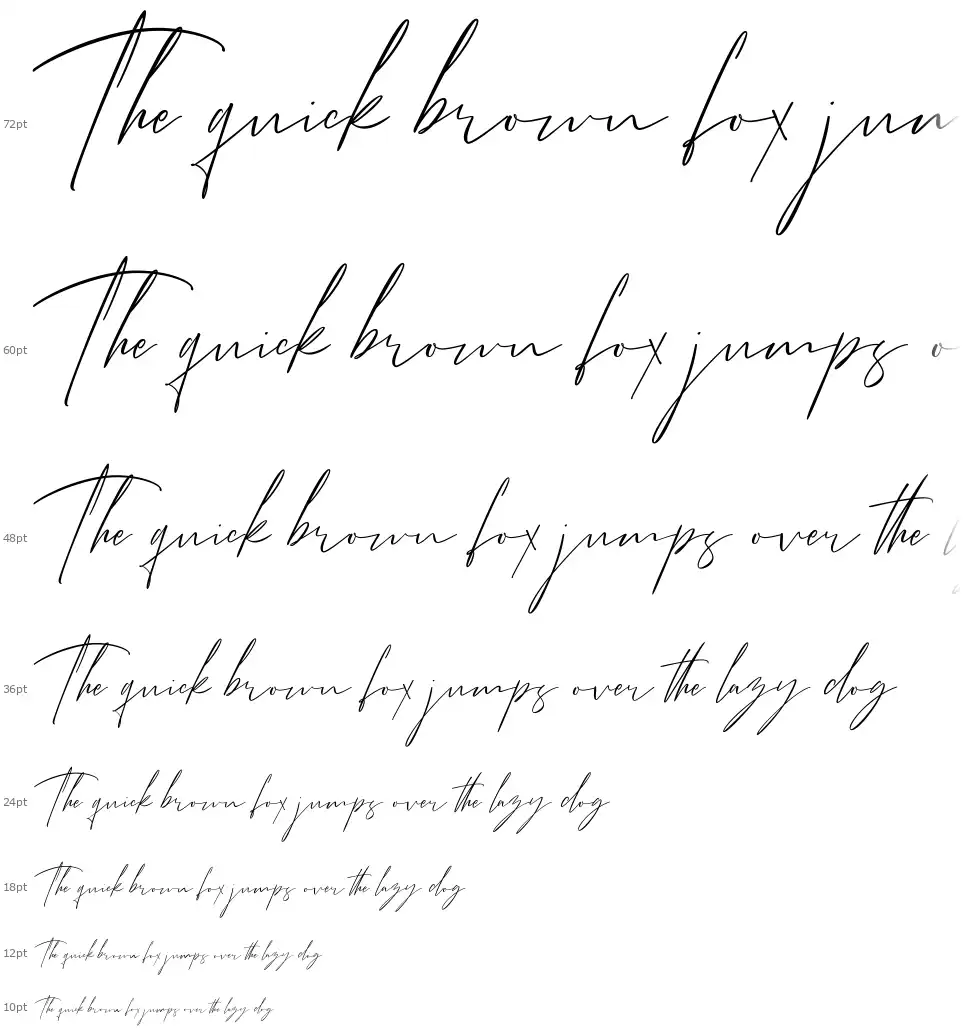 72pt The quick brown fox jun
60pt The quick brown fox jumps o
48pt The quick brown fox jumps over the l
36pt The quick brown fox jumps over the lazy dog
24pt The quick brown fox jumps over the lazy dog
18pt The quick brown fox jumps over the lazy dog
12pt The quick brown fox jumps over the lazy dog
10pt The quick brown fox jumps over the lazy dog